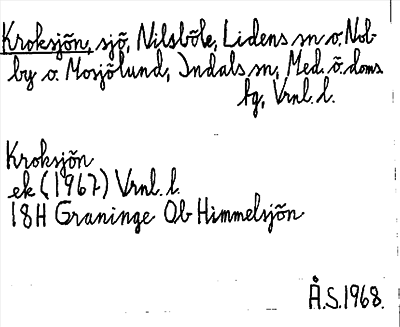 Kroksjön, sjö, Nilsböle, Lidens sn o. Nob-
by o. Mosjölund, Indals sn, Med. ö. doms
hg, Vrnl. l.
Kroksjön
ek (1967) Vrnl. l.
18H Graninge Ob Himmelsjön
Å.S. 1968.